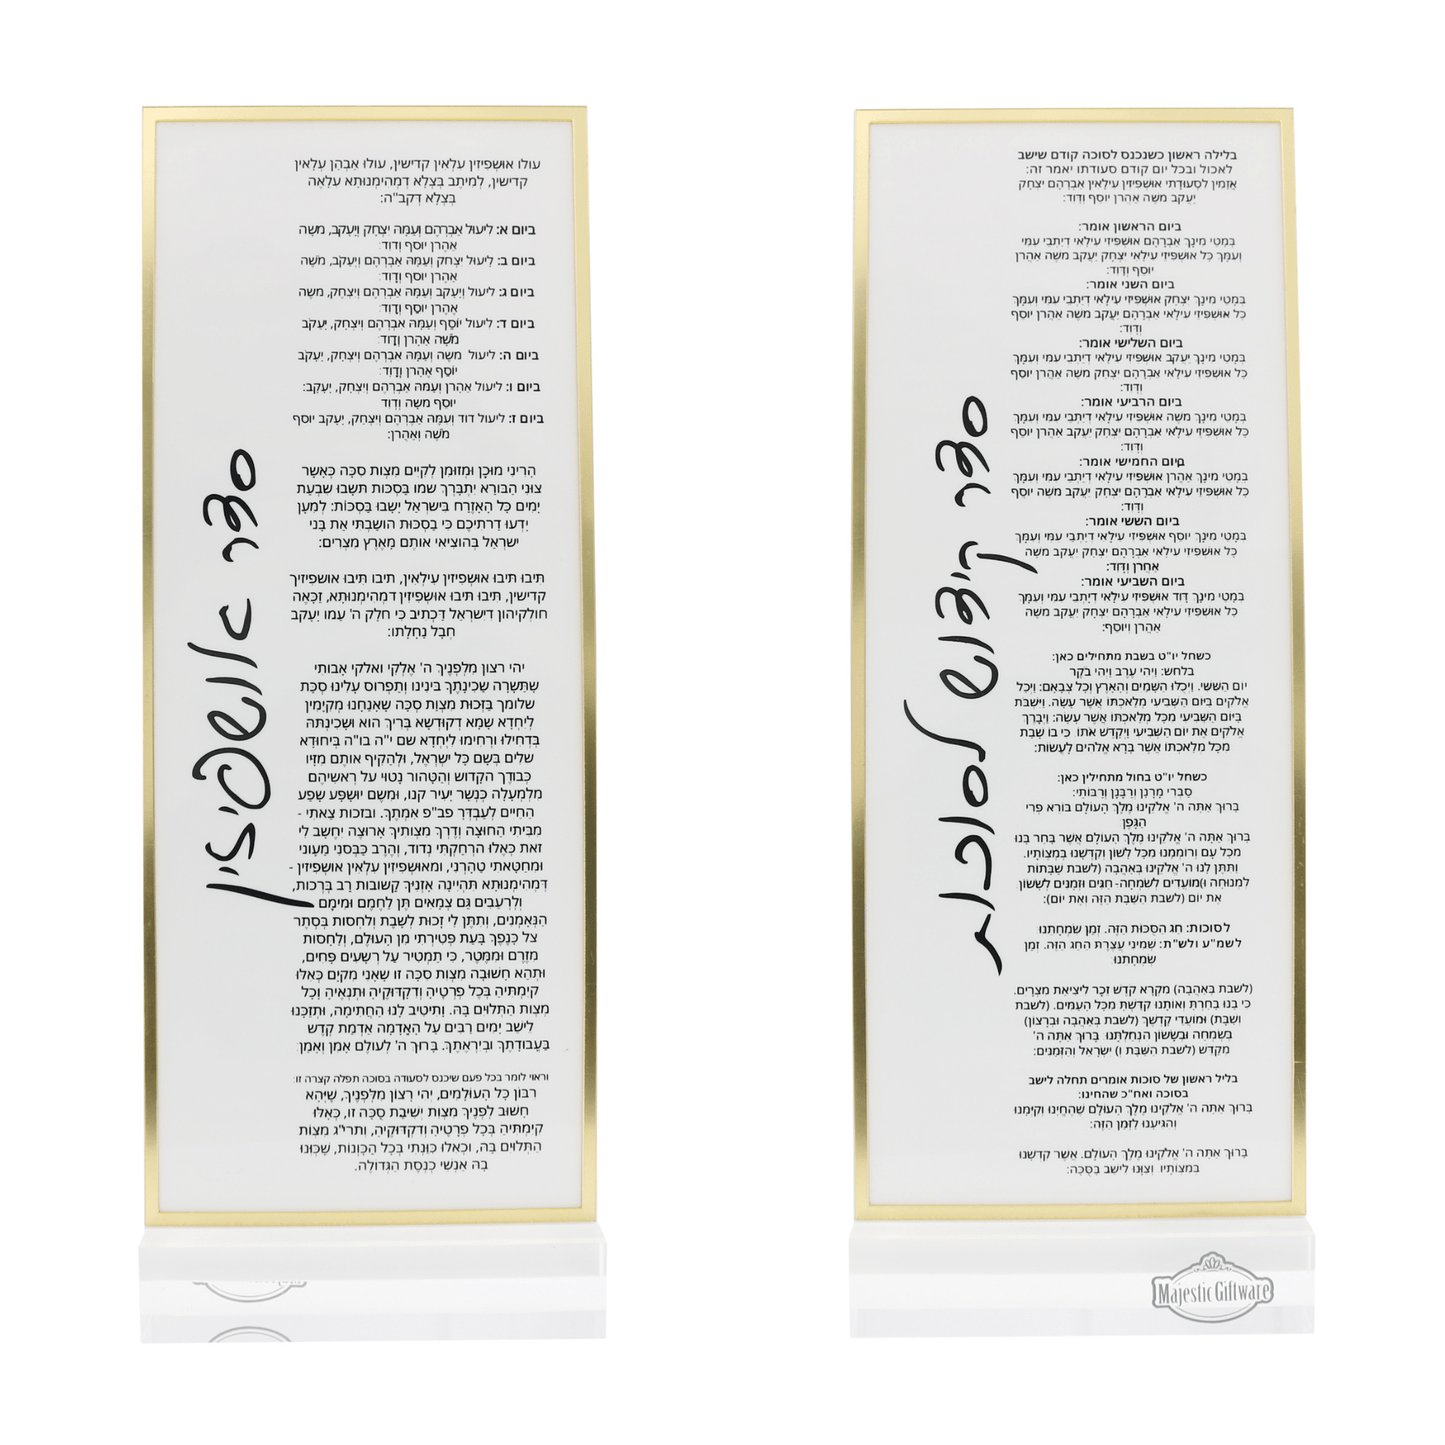 סדר אושפיזין
עולו אושפיזין עלאין קדישין, עולו אבהן עלאין
קדישין, למיתב בצלא דמהימנותא עלאה
בצלא דקב"ה:
ביום א: ליעול אברהם ועמה יצחק ויעקב, משה
אהרן יוסף ודוד:
ביום ב: ליעול יצחק ועמה אברהם ויעקב, משה
אהרן יוסף ודוד:
ביום ג: ליעול ויעקב ועמה אברהם ויצחק, משה
אהרן יוסף ודוד:
ביום ד: ליעול יוסף ועמה אברהם ויצחק, יעקב
משה אהרן ודוד:
ביום ה: ליעול משה ועמה אברהם ויצחק, יעקב
יוסף אהרן ודוד:
ביום ו: ליעול אהרן ועמה אברהם ויצחק, יעקב:
יוסף משה ודוד
ביום ז: ליעול דוד ועמה אברהם ויצחק, יעקב יוסף
משה ואהרן:
הריני מוכן ומזומן לקיים מצות סכה כאשר
צוני הבורא יתברך שמו בסכות תשבו שבעת
ימים כל האזרח בישראל ישבו בסכות: למען
ידעו דרתיכם כי בסכות הושבתי את בני
ישראל בהוציאי אותם מארץ מצרים:
תיבו תיבו אושפיזין עילאין, תיבו תיבו אושפיזין
קדישין, תיבו תיבו אושפיזין דמהימנותא, זכאה
חולקיהון דישראל דכתיב כי חלק ה' עמו יעקב
חבל נחלתו:
יהי רצון מלפניך ה' אלקי ואלקי אבותי
שתשרה שכינתך בינינו ותפרוס עלינו סכת
שלומך בזכות מצות סכה שאנחנו מקימין
ליחדא שמא דקודשא בריך הוא ושכינתה
בדחילו ורחימו ליחדא שם י"ה בו"ה ביחודא
שלים בשם כל ישראל, ולהקיף אותם מזיו
כבודך הקדוש והטהור נטוי על ראשיהם
מלמעלה כנשר יעיר קנו, ומשם יושפע שפע
החיים לעבדך פב"פ אמתך. ובזכות צאתי -
מביתי החוצה ודרך מצותיך ארוצה יחשב לי
זאת כאלו הרחקתי נדוד, והרב כבסני מעוני
ומחטאתי טהרני, ומאושפיזין עלאין אושפיזין -
דמהימנותא תהיינה אזניך קשובות רב ברכות,
ולרעבים גם צמאים תן לחמם ומימם
הנאמנים, ותתן לי זכות לשבת ולחסות בסתר
צל כנפיך בעת פטירתי מן העולם, ולחסות
מזרם וממטר, כי תמטיר על רשעים פחים,
ותהא חשובה מצות סכה זו שאני מקים כאלו
קימתיה בכל פרטיה ודקדוקיה ותנאיה וכל
מצות התלוים בה. ותיטיב לנו החתימה, ותזכנו
לישב ימים רבים על האדמה אדמת קדש
בעבודתך וביראתך. ברוך ה' לעולם אמן ואמן
וראוי לומר בכל פעם שיכנס לסעודה בסוכה תפלה קצרה זו:
רבון כל העולמים, יהי רצון מלפניך, שיהא
חשוב לפניך מצות ישיבת סכה זו, כאלו
קימתיה בכל פרטיה ודקדוקיה, ותרי"ג מצות
התלוים בה, וכאלו כונתי בכל הכונות, שכונו
בה אנשי כנסת הגדולה.
סדר קידוש לסוכות
בלילה ראשון כשנכנס לסוכה קודם שישב
לאכול ובכל יום קודם סעודתו יאמר זה:
אזמין לסעודתי אושפיזין עילאין אברהם יצחק
יעקב משה אהרן יוסף ודוד:
ביום הראשון אומר:
במטי מינך אברהם אושפיזי עילאי דיתבי עמי
ועמך כל אושפיזי עילאי יצחק יעקב משה אהרן
יוסף ודוד:
ביום השני אומר:
במטי מינך יצחק אושפיזי עילאי דיתבי עמי ועמך
כל אושפיזי עילאי אברהם יעקב משה אהרן יוסף
ודוד:
ביום השלישי אומר:
במטי מינך יעקב אושפיזי עילאי דיתבי עמי ועמך
כל אושפיזי עילאי אברהם יצחק משה אהרן יוסף
ודוד:
ביום הרביעי אומר:
במטי מינך משה אושפיזי עילאי דיתבי עמי ועמך
כל אושפיזי עילאי אברהם יצחק יעקב אהרן יוסף
ודוד:
ביום החמישי אומר:
במטי מינך אהרן אושפיזי עילאי דיתבי עמי ועמך
כל אושפיזי עילאי אברהם יצחק יעקב משה יוסף
ודוד:
ביום הששי אומר:
במטי מינך יוסף אושפיזי עילאי דיתבי עמי ועמך
כל אושפיזי עילאי אברהם יצחק יעקב משה
אהרן ודוד:
ביום השביעי אומר:
במטי מינך דוד אושפיזי עילאי דיתבי עמי ועמך
כל אושפיזי עילאי אברהם יצחק יעקב משה
אהרן ויוסף:
כשחל יו"ט בשבת מתחילים כאן:
בלחש: ויהי ערב ויהי בקר
יום הששי. ויכלו השמים והארץ וכל צבאם: ויכל
אלקים ביום השביעי מלאכתו אשר עשה. וישבת
ביום השביעי מכל מלאכתו אשר עשה: ויברך
אלקים את יום השביעי ויקדש אתו כי בו שבת
מכל מלאכתו אשר ברא אלהים לעשות:
כשחל יו"ט בחול מתחילין כאן:
סברי מרנן ורבנן ורבותי:
ברוך אתה ה' אלקינו מלך העולם בורא פרי
הגפן
ברוך אתה ה' אלקינו מלך העולם אשר בחר בנו
מכל עם ורוממנו מכל לשון וקדשנו במצותיו.
ותתן לנו ה' אלקינו באהבה (לשבת שבתות
למנוחה ו)מועדים לשמחה- חגים וזמנים לששון
את יום (לשבת השבת הזה ואת יום):
לסוכות: חג הסכות הזה. זמן שמחתנו
לשמ"ע ולש"ת: שמיני עצרת החג הזה. זמן
שמחתנו
(לשבת באהבה) מקרא קדש זכר ליציאת מצרים.
כי בנו בחרת ואותנו קדשת מכל העמים. (לשבת
ושבת) ומועדי קדשך (לשבת באהבה וברצון)
בשמחה ובששון הנחלתנו ברוך אתה ה'
מקדש (לשבת השבת ו) ישראל והזמנים:
בליל ראשון של סוכות אומרים תחלה לישב
בסוכה ואח"כ שהחינו:
ברוך אתה ה' אלקינו מלך העולם שהחינו וקימנו
והגיענו לזמן הזה:
ברוך אתה ה' אלקינו מלך העולם. אשר קדשנו
במצותיו וצונו לישב בסכה:
Majestic Giftware